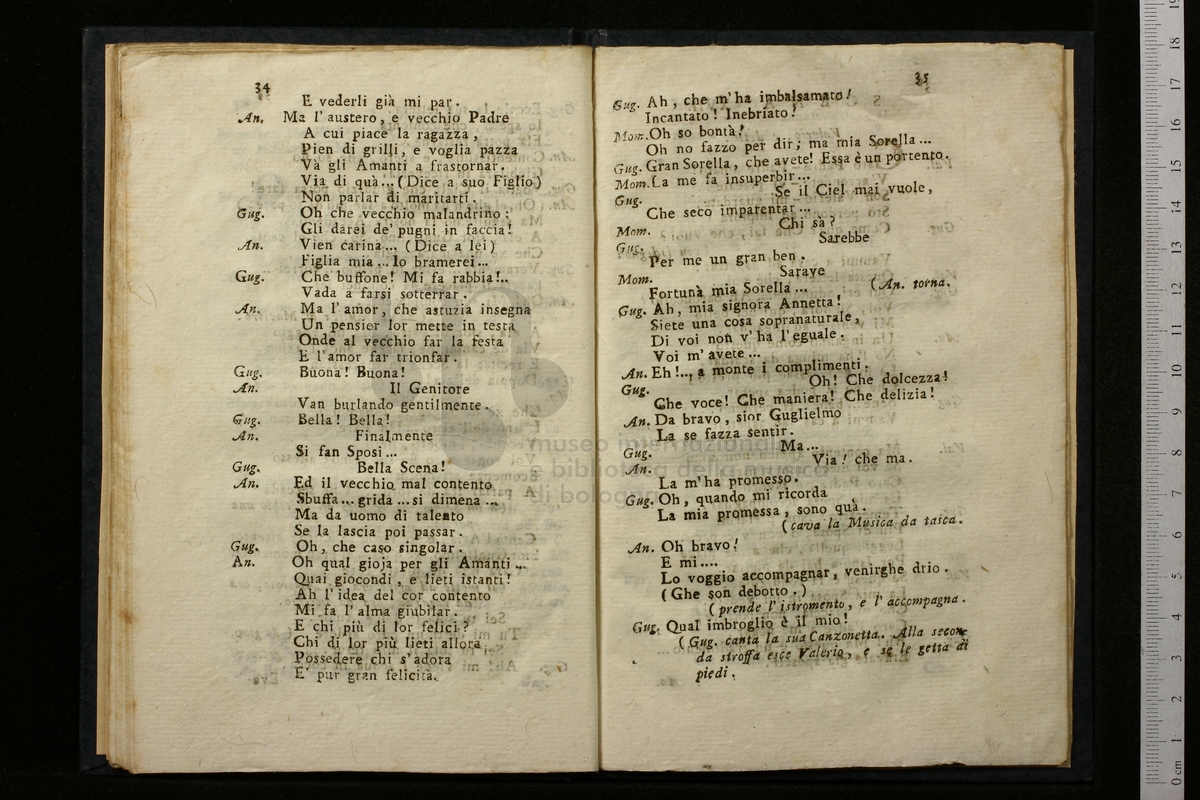 34
E vederli già mi par.
An. Ma l'austero, e vecchio Padre
A cui piace la ragazza,
Pien di grilli, e voglia pazza
Và gli Amanti a frastornar.
Via di quà... (Dice a suo Figlio)
Non parlar di maritarti.
Gug. Oh che vecchio malandrino:
Gli darei de' pugni in faccia!
An. Vien carina... (Dice a lei)
Figlia mia... Io bramerei...
Gug. Che buffone! Mi fa rabbia!..
Vada a farsi sotterrar.
An. Ma l'amor, che astuzia insegna
Un pensier lor mette in testa
Onde al vecchio far la festa
E l'amor far trionfar.
Gug. Buona! Buona!
An. Il Genitore
Van burlando gentilmente.
Gug. Bella! Bella!
An. Finalmente
Si fan Sposi...
Gug. Bella Scena!
An. Ed il vecchio mal contento
Sbuffa... grida... si dimena...
Ma da uomo di talento
Se la lascia poi passar.
Gug. Oh, che caso singolar.
An. Oh qual gioja per gli Amanti...
Quai giocondi, e lieti istanti!
Ah l'idea del cor contento
Mi fa l'alma giubilar.
E chi più di lor felici?
Chi di lor più lieti allora,
Possedere chi s'adora
E' pur gran felicità.
35
Gug. Ah, che m'ha imbalsamato!
Incantato! Inebriato!
Mom. Oh so bontà!
Oh no fazzo per dir; ma mia Sorella...
Gug. Gran Sorella, che avete! Essa è un portento.
Mom. La me fa insuperbir...
Gug. Se il Ciel mai vuole,
Che seco imparentar...
Mom. Chi sà?
Gug. Sarebbe
Per me un gran ben.
Mom. Sarave
Fortunà mia Sorella... (An. torna.
Gug. Ah, mia signora Annetta!
Siete una cosa sopranaturale,
Di voi non v'ha l'eguale.
Voi m'avete...
An. Eh!... a monte i complimenti.
Gug. Oh! Che dolcezza!
Che voce! Che maniera! Che delizia!
An. Da bravo, sior Guglielmo
La se fazza sentir.
Gug. Ma...
An. Via! che ma.
La m'ha promesso.
Gug. Oh, quando mi ricorda
La mia promessa, sono quà.
(cava la Musica da tasca.
An. Oh bravo!
E mi....
Lo voggio accompagnar, venirghe drio.
(Ghe son debotto.)
(prende l'istromento, e l'accompagna.
Gug. Qual imbroglio è il mio!
(Gug. canta la sua Canzonetta. Alla secon-
da stroffa esce Valerio, e se le getta ai
piedi.
museo internazionale
e biblioteca della musica
di bologna
0 cm 1 2 3 4 5 6 7 8 9 10 11 12 13 14 15 16 17 18 19